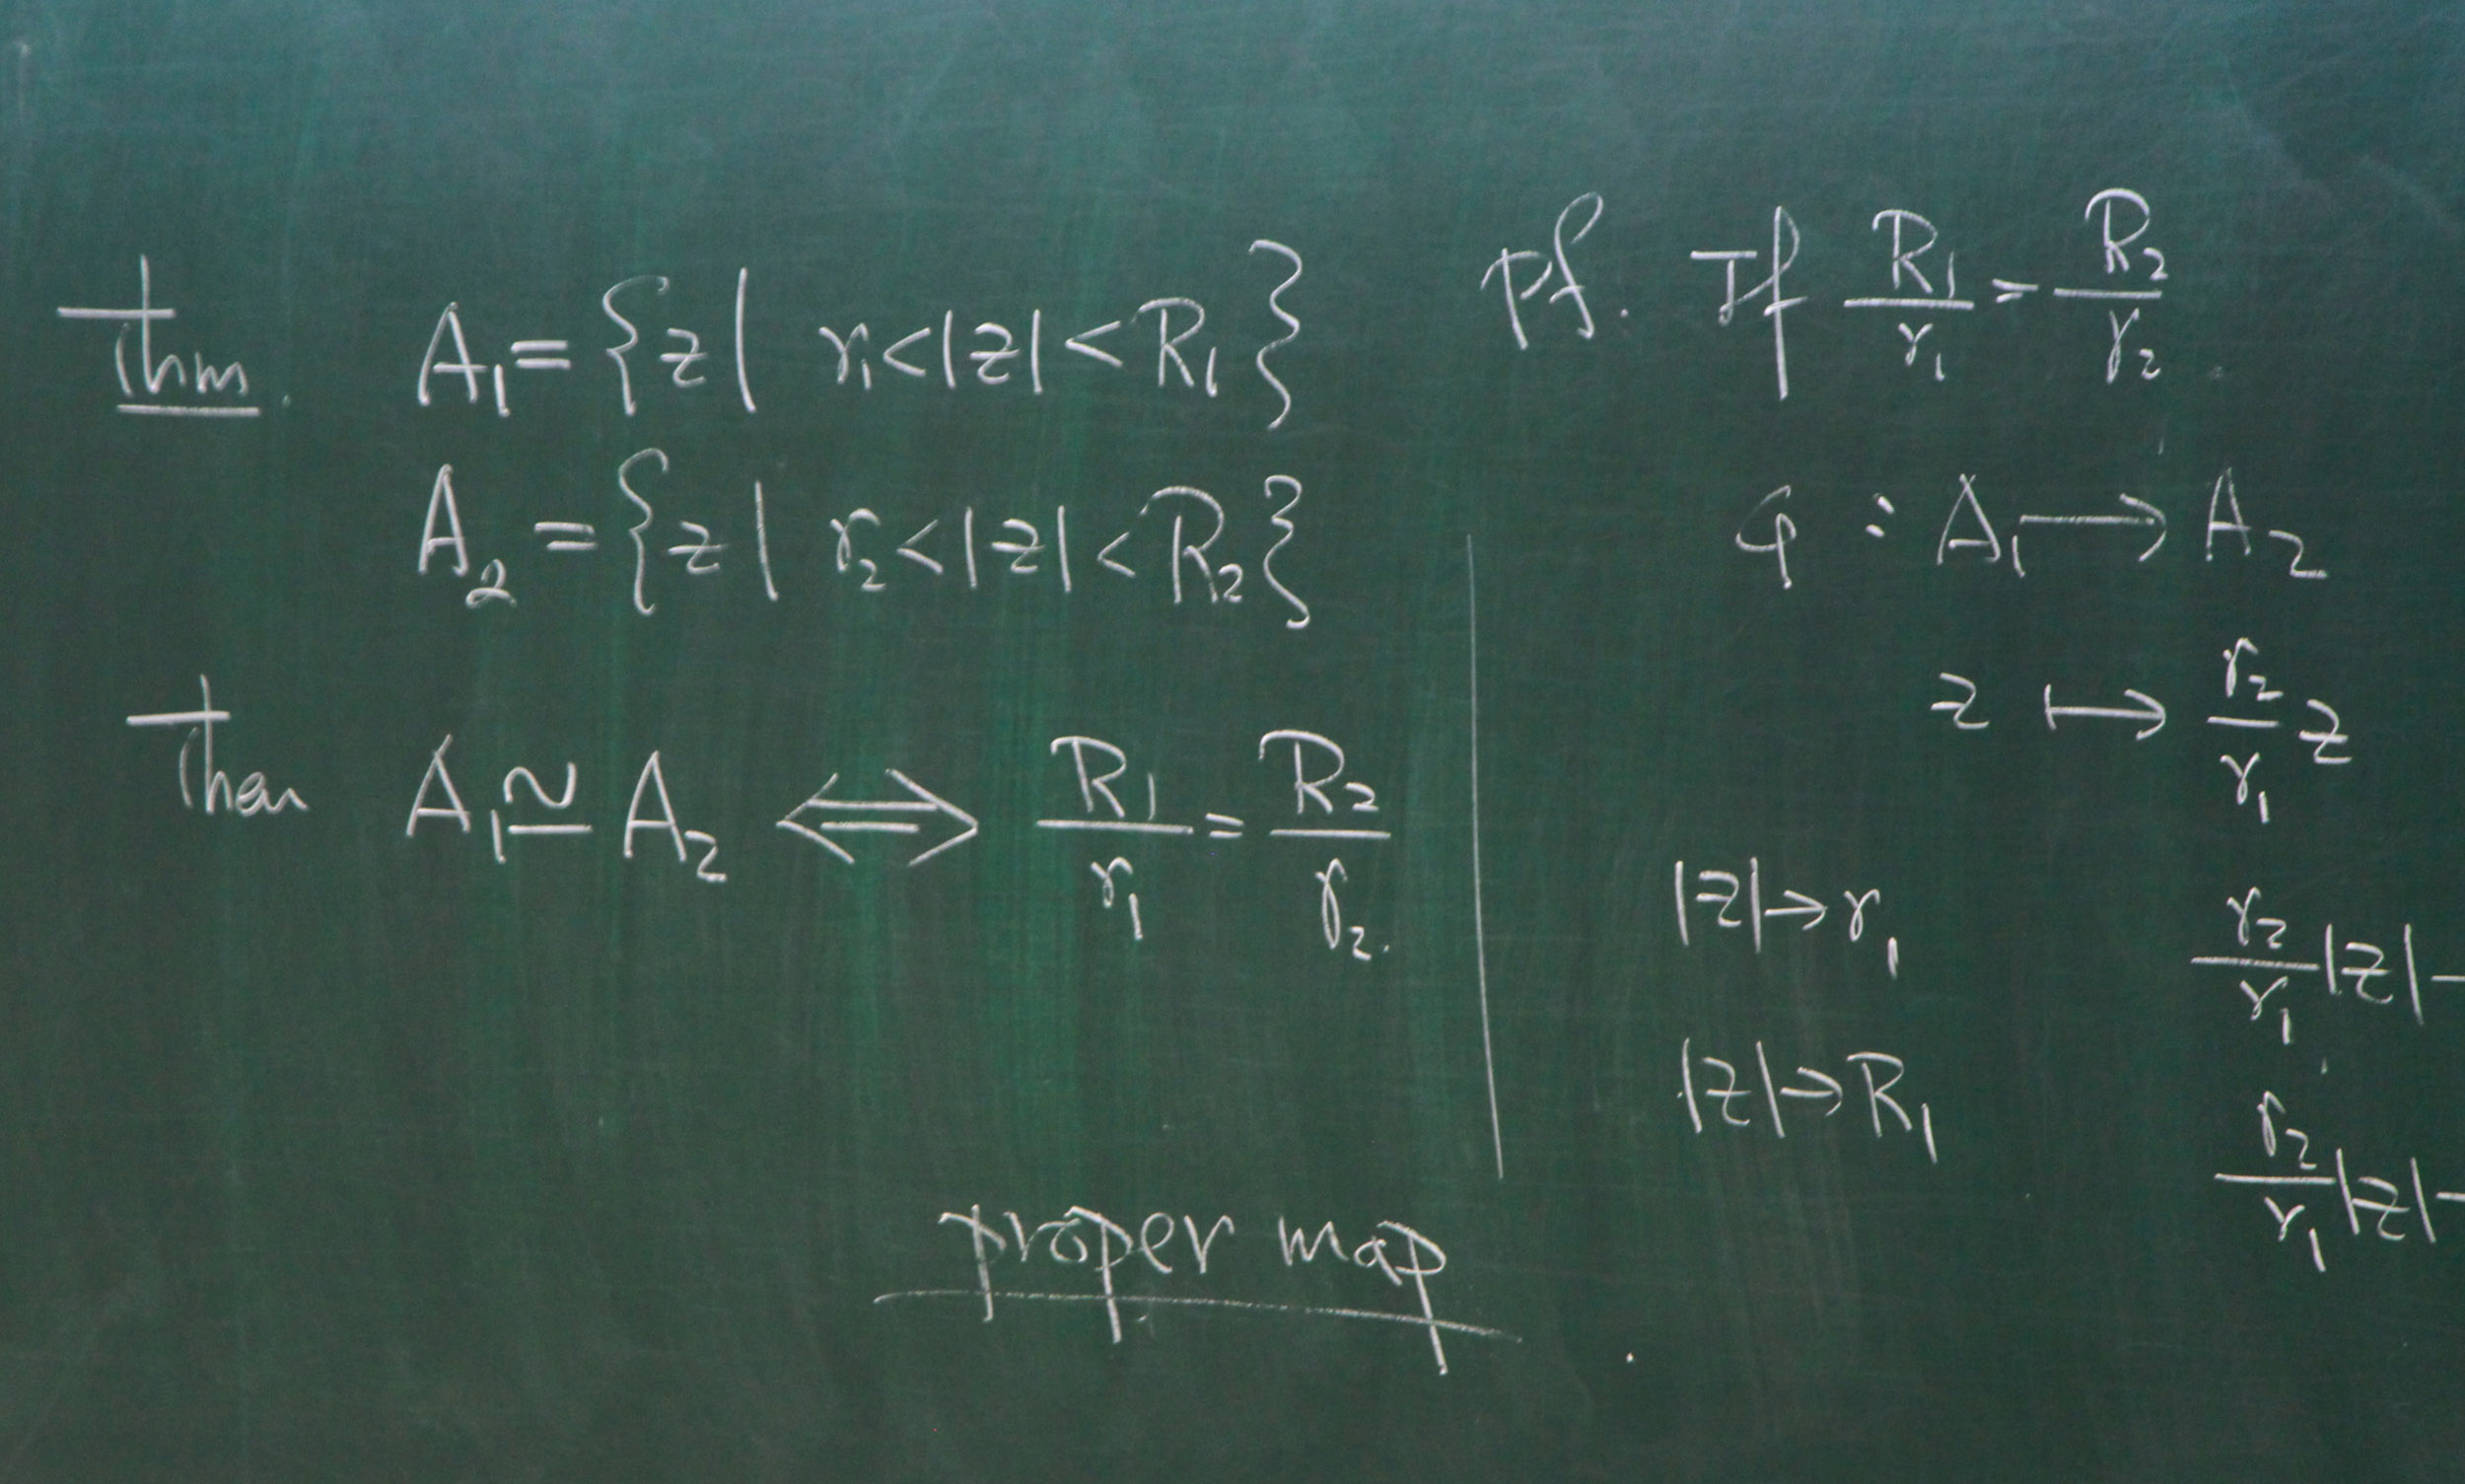 Thm. A₁ = {z | r₁ < |z| < R₁}
A₂ = {z | r₂ < |z| < R₂}
Then A₁ ≃ A₂ ⟺ R₁/r₁ = R₂/r₂.
proper map
pf. If R₁/r₁ = R₂/r₂.
φ : A₁ → A₂
z ↦ r₂/r₁ z
|z| → r₁ r₂/r₁ |z| -
|z| → R₁ r₂/r₁ |z| -